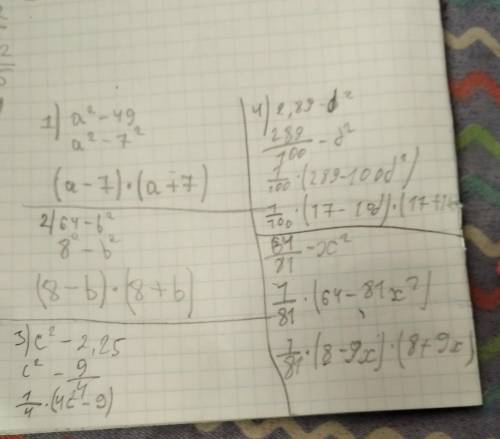 1) a² - 49
a² - 7²
(a - 7) · (a + 7)
2) 64 - b²
8² - b²
(8 - b) · (8 + b)
3) c² - 2,25
c² - 9/4
1/4 · (4c² - 9)
4) 2,89 - d²
289/100 - d²
1/100 · (289 - 100d²)
1/100 · (17 - 10d) · (17 +
64/81 - x²
1/81 · (64 - 81x²)
1/81 · (8 - 9x) · (8 + 9x)